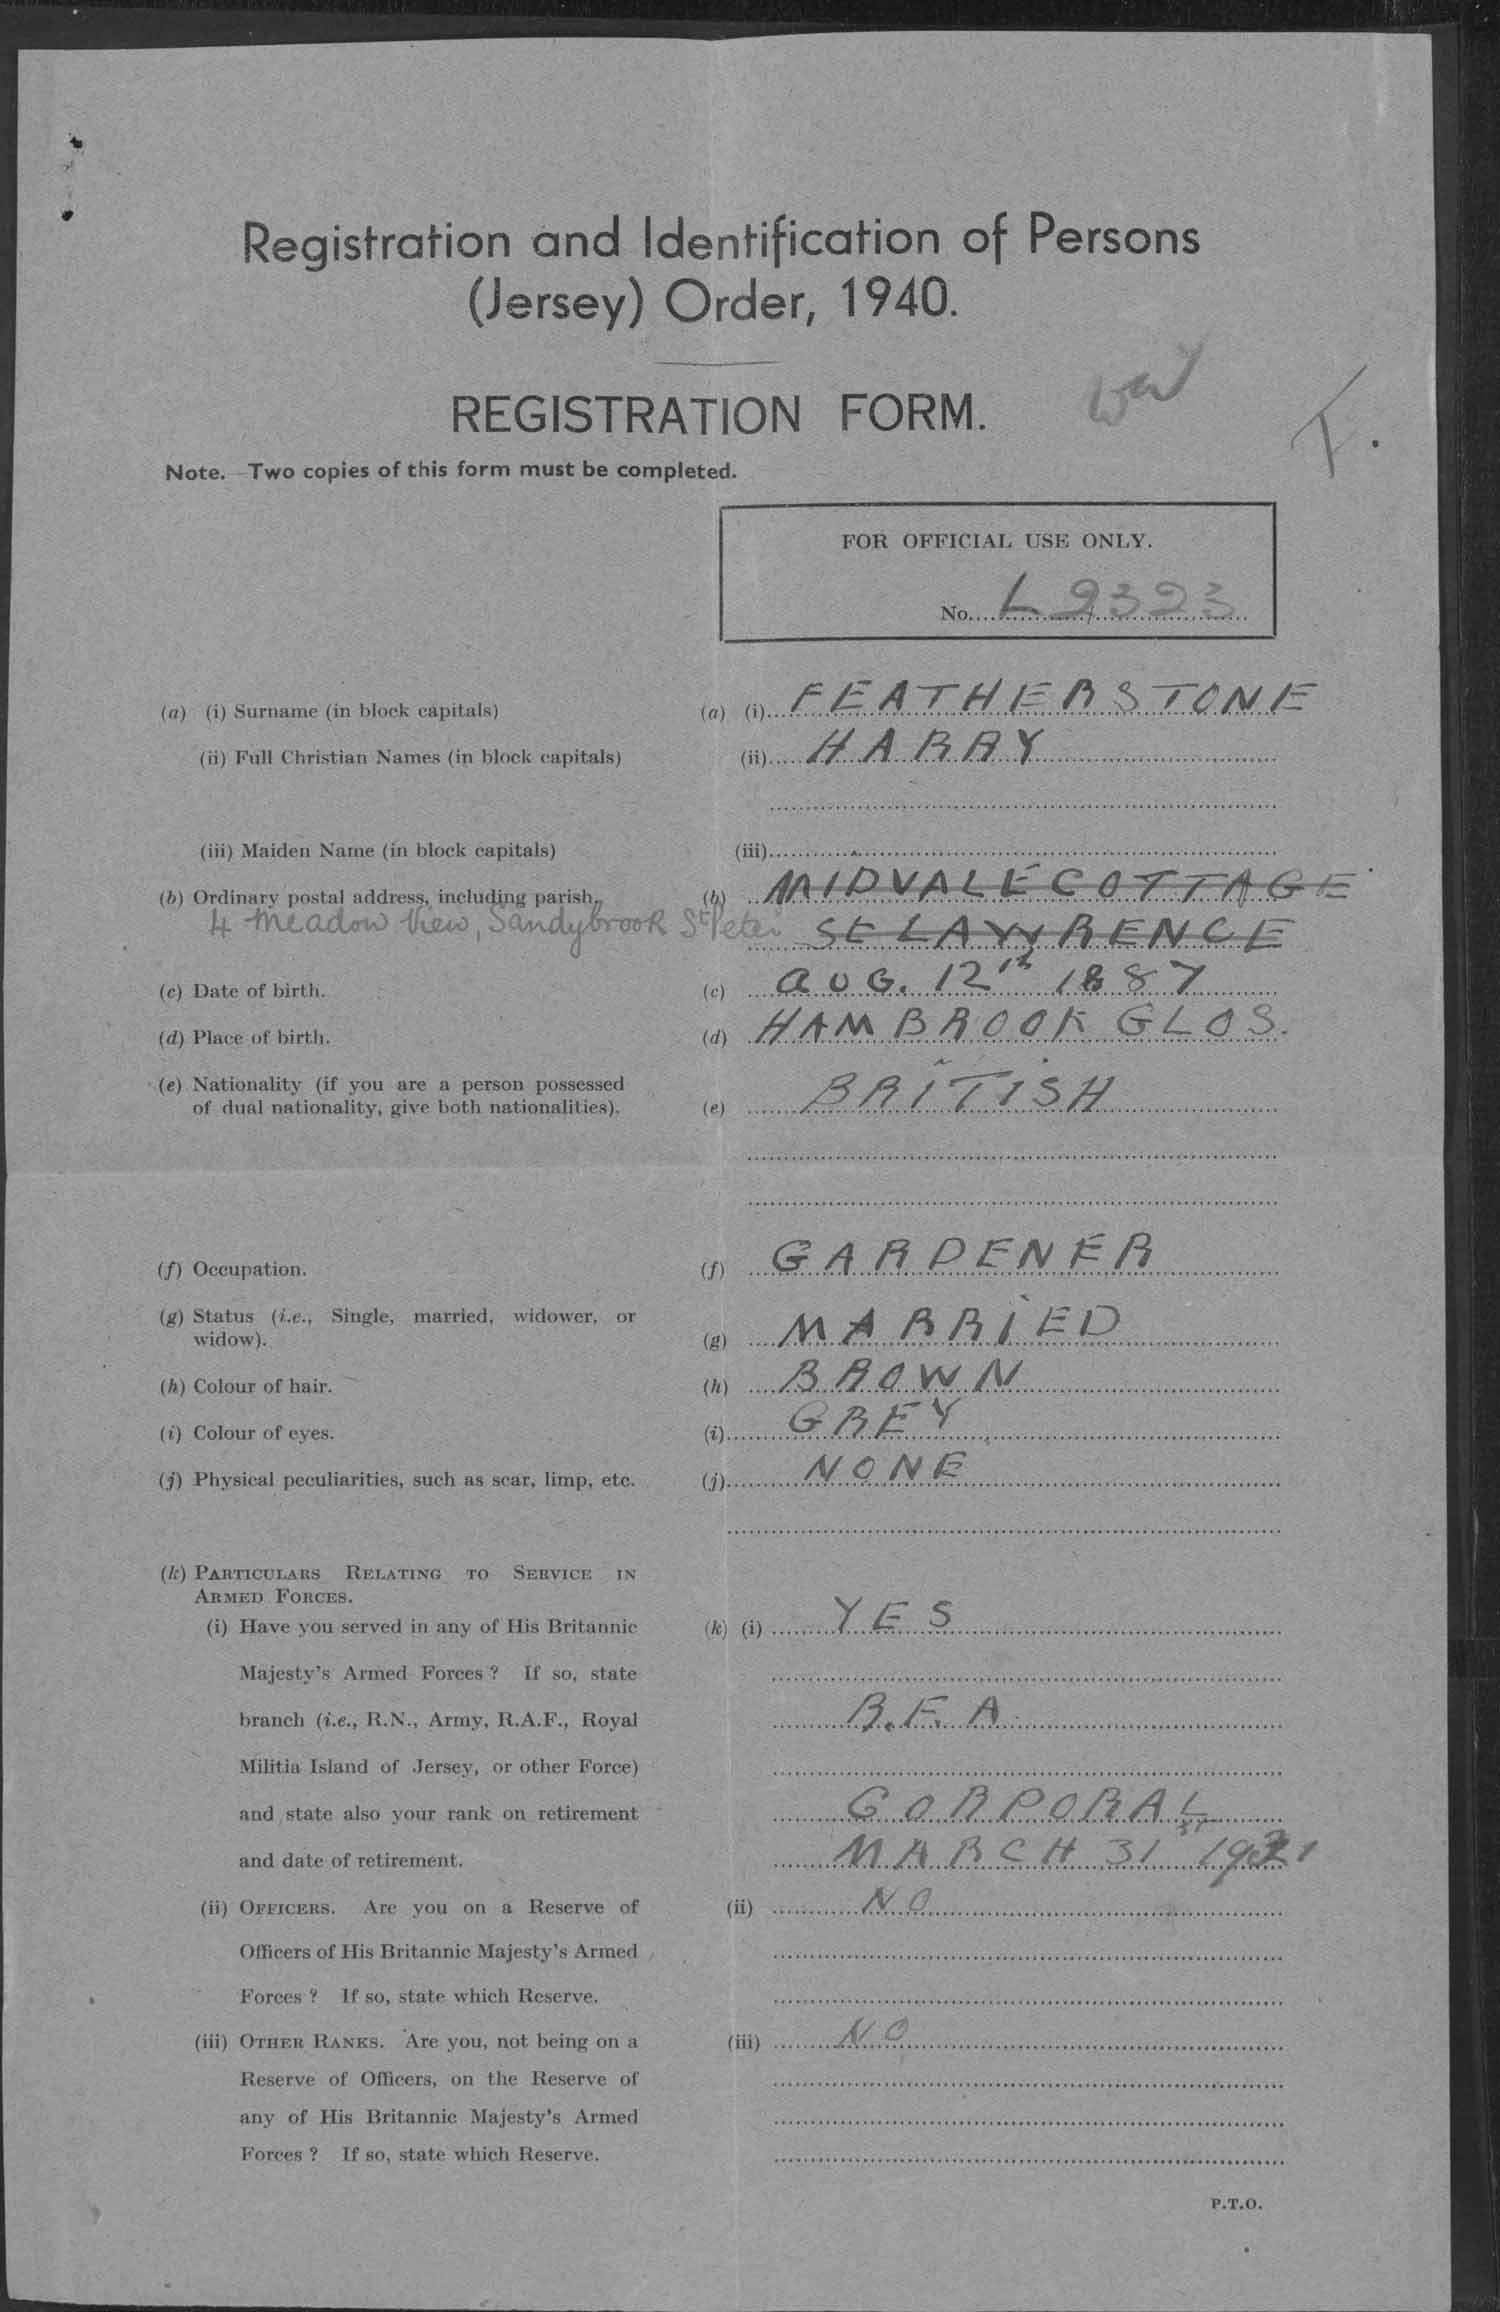 Registration and Identification of Persons
(Jersey) Order, 1940.
REGISTRATION FORM.
T.
Note.—Two copies of this form must be completed.
FOR OFFICIAL USE ONLY.
No. L 2323
(a) (i) Surname (in block capitals) (a) (i) FEATHERSTONE
(ii) Full Christian Names (in block capitals) (ii) HARRY
(iii) Maiden Name (in block capitals) (iii)
(b) Ordinary postal address, including parish. (b) MIDVALE COTTAGE
4 Meadow View, Sandybrook St Peter St LAWRENCE
(c) Date of birth. (c) AUG. 12th 1887
(d) Place of birth. (d) HAMBROOK GLOS.
(e) Nationality (if you are a person possessed
of dual nationality, give both nationalities). (e) BRITISH
(f) Occupation. (f) GARDENER
(g) Status (i.e., Single, married, widower, or
widow). (g) MARRIED
(h) Colour of hair. (h) BROWN
(i) Colour of eyes. (i) GREY
(j) Physical peculiarities, such as scar, limp, etc. (j) NONE
(k) PARTICULARS RELATING TO SERVICE IN
ARMED FORCES.
(i) Have you served in any of His Britannic (k) (i) YES
Majesty's Armed Forces ? If so, state
branch (i.e., R.N., Army, R.A.F., Royal R.F.A.
Militia Island of Jersey, or other Force)
and state also your rank on retirement CORPORAL
and date of retirement. MARCH 31st 1921
(ii) OFFICERS. Are you on a Reserve of (ii) NO
Officers of His Britannic Majesty's Armed
Forces ? If so, state which Reserve.
(iii) OTHER RANKS. Are you, not being on a (iii) NO
Reserve of Officers, on the Reserve of
any of His Britannic Majesty's Armed
Forces ? If so, state which Reserve.
P.T.O.